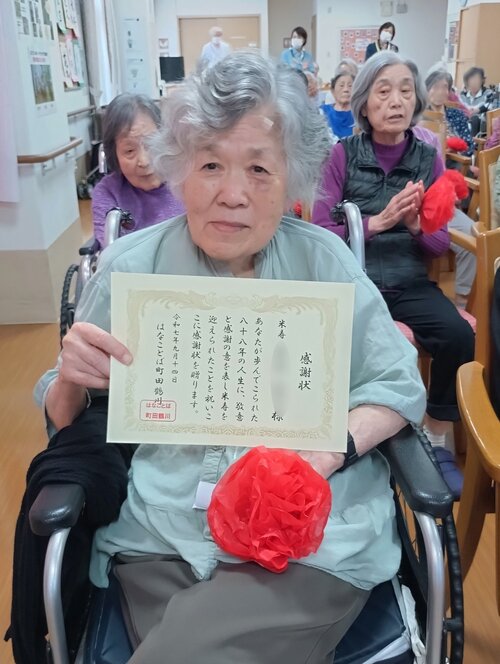 感謝状
米寿
様
あなたが歩んでこられた
八十八年の人生に、敬意
と感謝の意を表し米寿を
迎えられたことを祝いこ
こに感謝状を贈ります。
令和七年九月十四日
はなことば町田鶴川
はなことば
町田鶴川